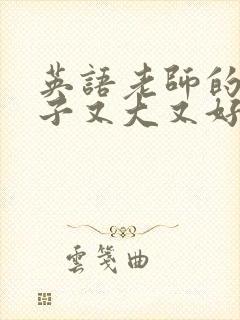 英語老師的
子又大又好
雲箋曲